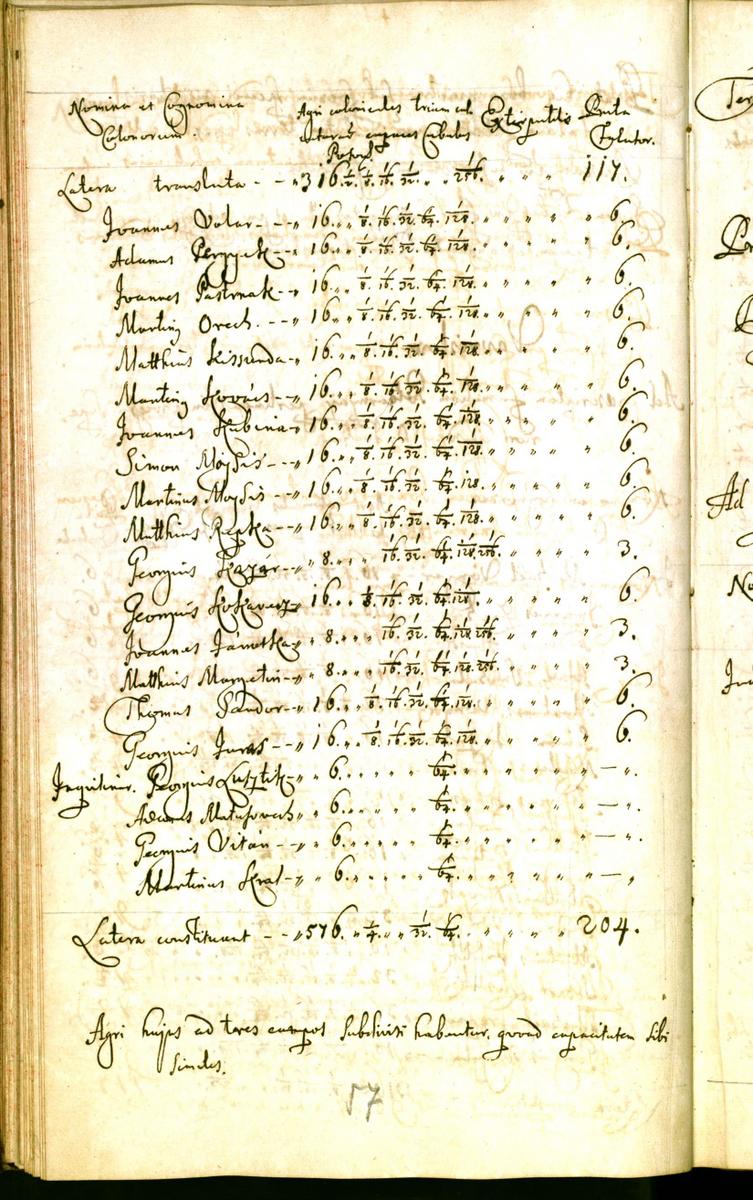 Nomina et Cognomina Colonorum. Agri colonicales trium cul turaru͠ capaces Cubulos Poson. Exstirpatitis Prata Falcator.
Latera translata - - „ 316. 1/2. 1/8. 1/16. 1/32. „ „ 1/256. „ „ „ 117.
Joannes Volar - - „ 16. „ „ 1/8. 1/16. 1/32. 1/64. 1/128. „ „ „ „ „ 6.
Adamus - - „ 16. „ „ 1/8. 1/16. 1/32. 1/64. 1/128. „ „ „ „ „ 6.
Joannes Pastrnak - „ 16. „ „ 1/8. 1/16. 1/32. 1/64. 1/128. „ „ „ „ „ 6.
Martinus Orech. - - „ 16. „ „ 1/8. 1/16. 1/32. 1/64. 1/128. „ „ „ „ „ 6.
Matthias - „ 16. „ „ 1/8. 1/16. 1/32. 1/64. 1/128. „ „ „ „ „ 6.
Martinus Kovács - - „ 16. „ „ 1/8. 1/16. 1/32. 1/64. 1/128. „ „ „ „ „ 6.
Joannes Kubina - „ 16. „ „ 1/8. 1/16. 1/32. 1/64. 1/128. „ „ „ „ „ 6.
Simon Mojsis - - „ 16. „ „ 1/8. 1/16. 1/32. 1/64. 1/128. „ „ „ „ „ 6.
Martinus Mojsis - „ 16. „ „ 1/8. 1/16. 1/32. 1/64. 1/128. „ „ „ „ „ 6.
Matthias Repka - - „ 16. „ „ 1/8. 1/16. 1/32. 1/64. 1/128. „ „ „ „ „ 6.
Georgius - - „ 8. „ „ „ 1/16. 1/32. 1/64. 1/128. 1/256. „ „ „ „ 3.
Georgius Kokavecz „ 16. „ „ 1/8. 1/16. 1/32. 1/64. 1/128. „ „ „ „ „ 6.
Joannes Jánotka „ 8. „ „ „ 1/16. 1/32. 1/64. 1/128. 1/256. „ „ „ „ 3.
Matthias Margetin - „ 8. „ „ „ 1/16. 1/32. 1/64. 1/128. 1/256. „ „ „ „ 3.
Thomas Sandor - - „ 16. „ „ 1/8. 1/16. 1/32. 1/64. 1/128. „ „ „ „ „ 6.
Georgius Juras - - „ 16. „ „ 1/8. 1/16. 1/32. 1/64. 1/128. „ „ „ „ „ 6.
Inquilinis. Georgius Luptak - „ „ 6. „ „ „ „ „ 1/64. „ „ „ „ „ „ — „.
Adamus Matusovech „ „ 6. „ „ „ „ „ 1/64. „ „ „ „ „ „ — „.
Georgius Vitán - - „ „ 6. „ „ „ „ „ 1/64. „ „ „ „ „ „ — „.
Martinus Kral - „ „ 6. „ „ „ „ „ 1/64. „ „ „ „ „ „ — „
Latera constituunt - - „ 576. „ 1/4. „ „ 1/32. 1/64. „ „ „ „ „ 204.
Agri hujus ad tres campos subdivisi habentur, quoad capacitatem sibi
similes.
57
Ad